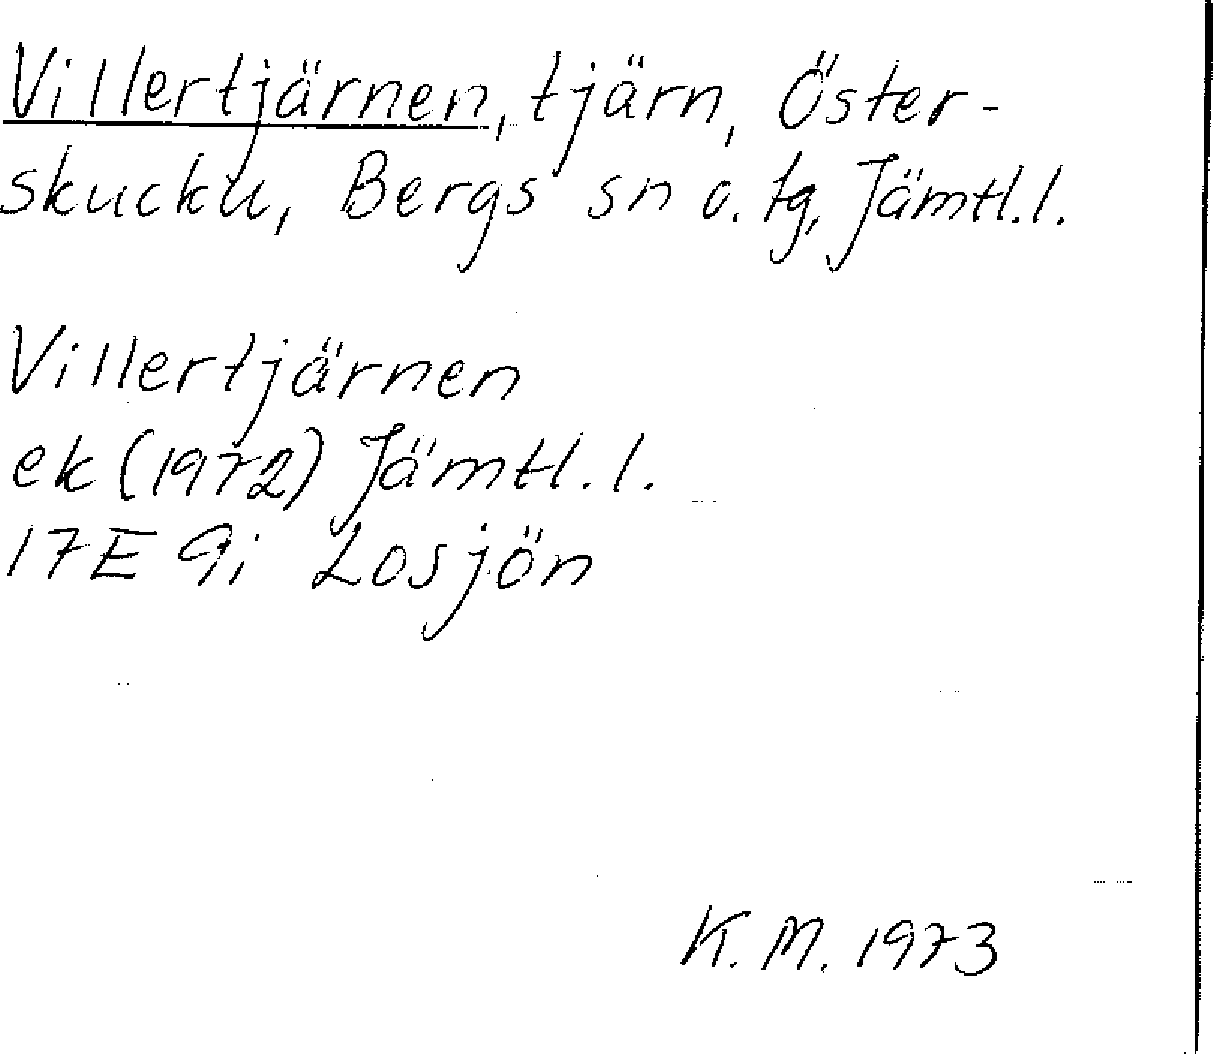 Villertjärnen, tjärn, Öster-
skucku, Bergs sn o. tg, Jämtl.l.
Villertjärnen
ek (1972) Jämtl.l.
17E 9i Losjön
K.M. 1973